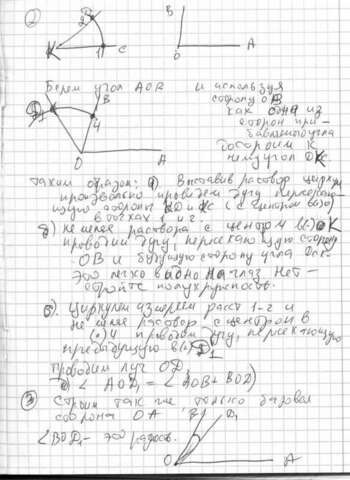 ②
D
2
K 1 C
B
O A
Берем угол AOB и используя
сторону OB
как одна из
сторон при-
бавляемого угла
достроим к
нему угол
D1
B
4
O A
Таким образом: а) Выставив раствор циркуля
произвольно проведем дугу пересекаю-
щую стороны KD и KC (с центром
в точках 1 и 2.
б) не меняя раствора с центром
проводим дугу, пересекающую сторону
OB и будущую сторону угла
Это легко видно на глаз. Нет -
стройте полукружность.
в) Циркулем измеряем расст 1-2 и
не меняя раствор с центром в
4 проводим дугу, пересекающую
предыдущую
Проводим луч OD1
∠ AOD1 = ∠ AOB + BOD1
③ Строим так же только базовая
сторона OA
B D1
∠BOD1 - это разность.
O A